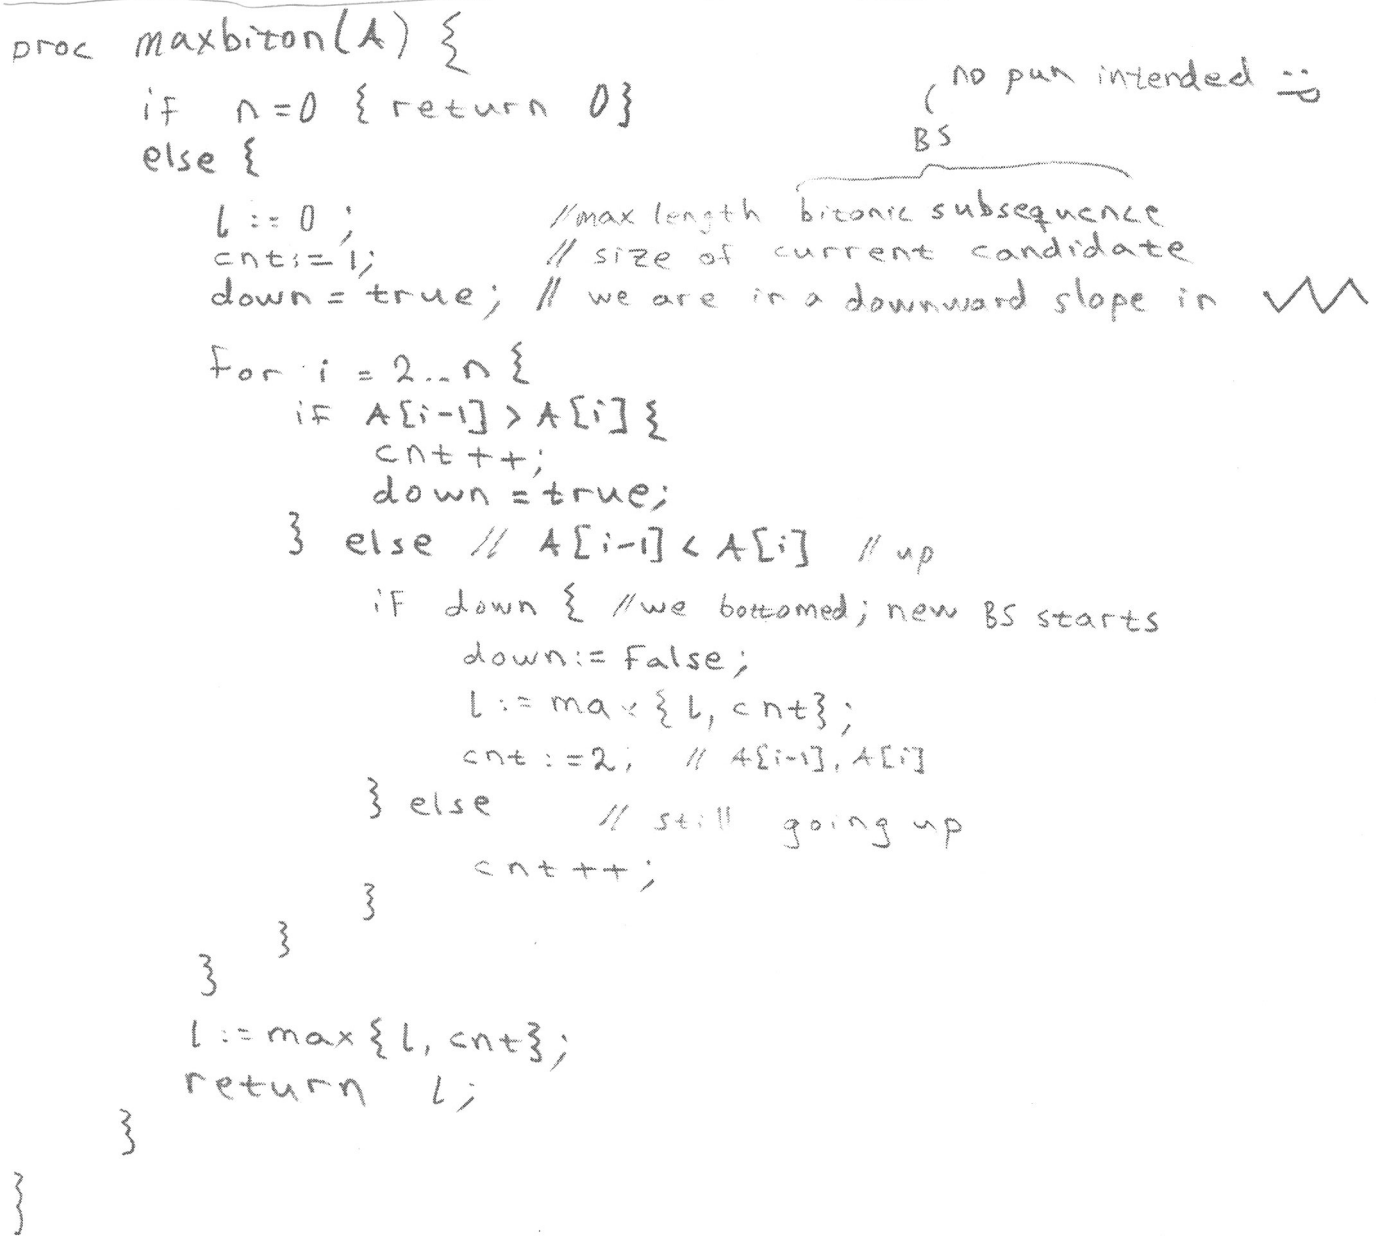 proc maxbiton(A) {
no pun intended :)
if n=0 { return 0}
BS
else {
l := 0 ; //max length bitonic subsequence
cnt:=1; // size of current candidate
down = true; // we are in a downward slope in
for i = 2..n {
if A[i-1] > A[i] {
cnt++;
down = true;
} else // A[i-1] < A[i] // up
if down { //we bottomed; new BS starts
down:= false;
l := max{l, cnt};
cnt :=2; // A[i-1], A[i]
} else // still going up
cnt ++;
}
}
}
l := max{l, cnt};
return l;
}
}